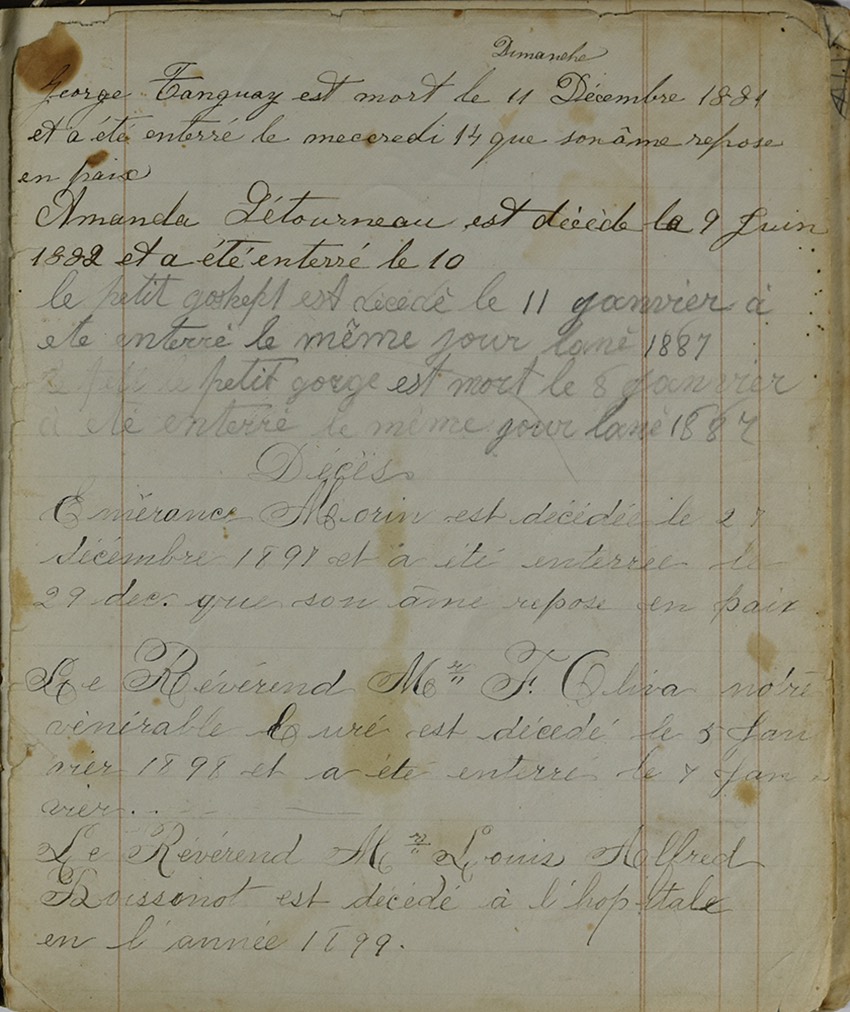 Dimanche
George Tanguay est mort le 11 Décembre 1881
et a été enterré le meccredi 14 que son âme repose
en paix
Amanda Létourneau est décéde le 9 Juin
1882 et a été enterré le 10
le petit est décédé le 11 Janvier à
ete enterré le même jour lané 1887
le petit gorge est mort le 8 Janvier
à eté enterré le même jour lané 1887
Décès
Emérance Morin est décédée le 27
décembre 1897 et a été enterrée le
29 dec. que son âme repose en paix
Le Révérend Mr F. Oliva notre
vénérable Curé est décédé le 5 Jan
vier 1898 et a été enterré le 7 Jan
vier..
Le Révérend Mr Louis Alfred
Boissonot est décédé à l'hopitale
en l'année 1899.